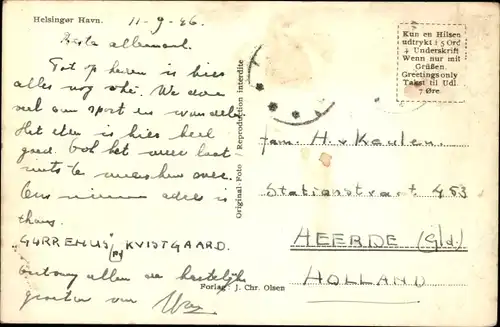 Helsingør Havn.
11-9-26.
Beste allemaal.
Tot op heden is hier
alles nog okei. We doen
veel aan sport en wandelen
Het eten is hier heel
goed. Ook het weer laat
niets te wenschen over.
Ons nieuwe adres is
thans.
"GURREHUS" KVISTGAARD.
Ontvang allen de hartelijke
groeten van
Original-Foto Reproduction interdite
Forlag: J. Chr. Olsen
Kun en Hilsen
udtrykt i 5 Ord
+ Underskrift
Wenn nur mit
Grüßen.
Greetings only
Takst til Udl.
7 Øre.
Fam. H. v Keulen.
Stationsstraat 453
HEERDE (Gld.)
HOLLAND